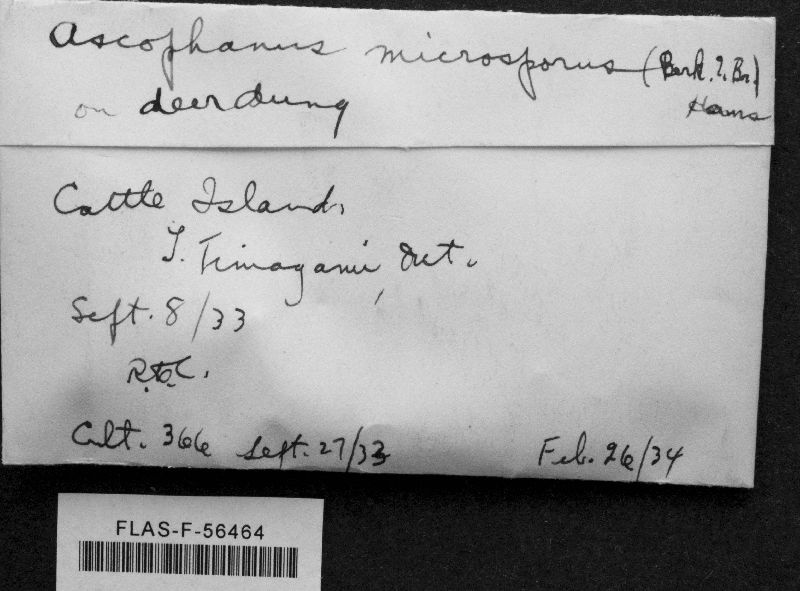 Ascophanus microsporus (Berk. & Br.)
Hans
on deer dung
Cattle Island,
L. Timagami, Ont.
Sept. 8/33
R.F.C.
Cult. 366 Sept. 27/33 Feb. 26/34
FLAS-F-56464